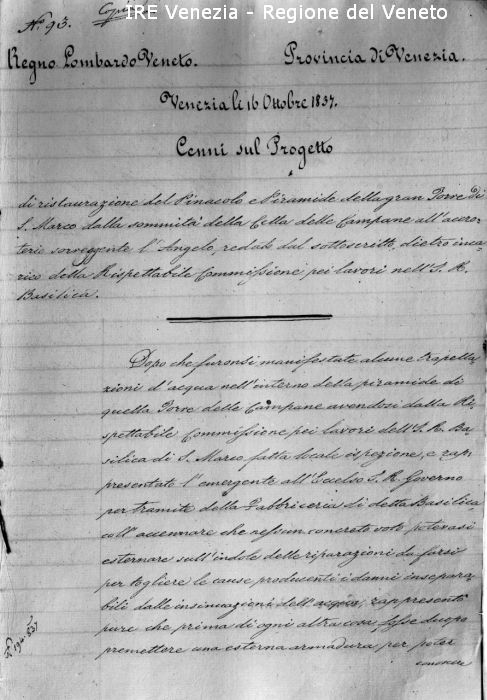 IRE Venezia - Regione del Veneto
N.° 93. Copia
Regno Lombardo Veneto. Provincia di Venezia.
Venezia li 16 Ottobre 1837.
Cenni sul Progetto
di ristaurazione del Pinacolo e Piramide della gran Torre di
S. Marco dalla sommità della Cella delle Campane all'acro-
terio sorreggente l'Angelo, redatti dal sottoscritto, dietro inca-
rico della Rispettabile Commissione pei lavori nell'I. R.
Basilica.
Dopo che furonsi manifestate alcune trapella-
zioni d'acqua nell'interno della piramide di
quella Torre delle Campane avendosi dalla Ri-
spettabile Commissione pei lavori dell'I. R. Ba-
silica di S. Marco fatta locale ispezione, e rap-
presentato l'emergente all'Eccelso I. R. Governo
per tramite della Fabbriceria di detta Basilica
coll'accennare che nessun concreto voto potevasi
esternare sull'indole delle riparazioni da farsi
per togliere le cause producenti i danni insepara-
bili dalle insinuazioni dell'acqua, rappresentò
pure che prima di ogni altra cosa, fosse duopo
premettere una esterna armadura, per poter
N.° 194-837